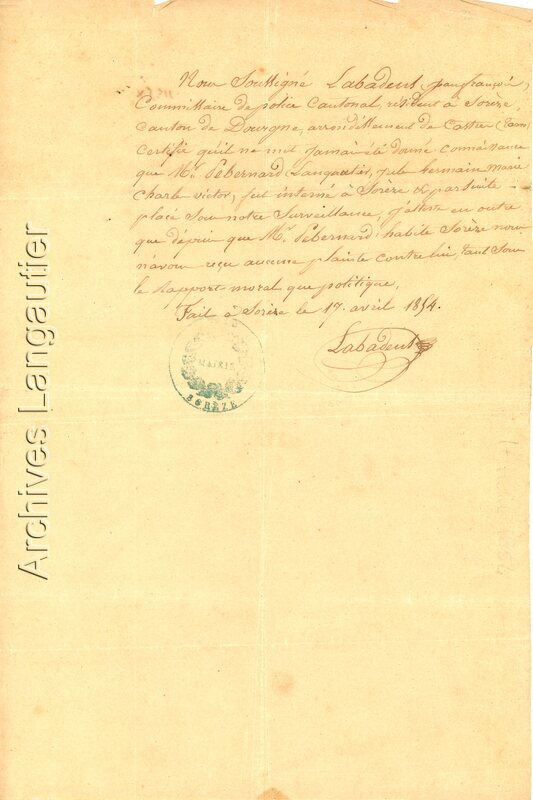 Nous Soussigné Labadens, jean françois,
Commissaire de police Cantonal, résident à Sorèze,
Canton de Dourgne, arrondissement de Castre (tarn)
Certifie qu'il ne nous jamais été donné connaissance
que Mr. Pebernard Langautier, jule hermain marie
charle victor, fut interné à Sorèze & par suite
placé Sous notre Surveillance, j'atteste en outre
que dépuis que Mr. Pebernard habite Sorèze nous
n'avons reçu aucune plainte contre lui, tant Sous
le Rapport moral que politique.
Fait à Sorèze le 17. avril 1854.
Labadens
MAIRIE
SORÈZE
Archives Langautier